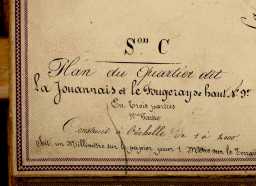 Son C
Plan du Quartier dit
La Jouannais et le Fougeray de haut. &
En Trois parties
1ère Partie
Construit à l'échelle de 1 à
Soit un Millimètre sur le papier pour 1 Mètre sur le Terrain